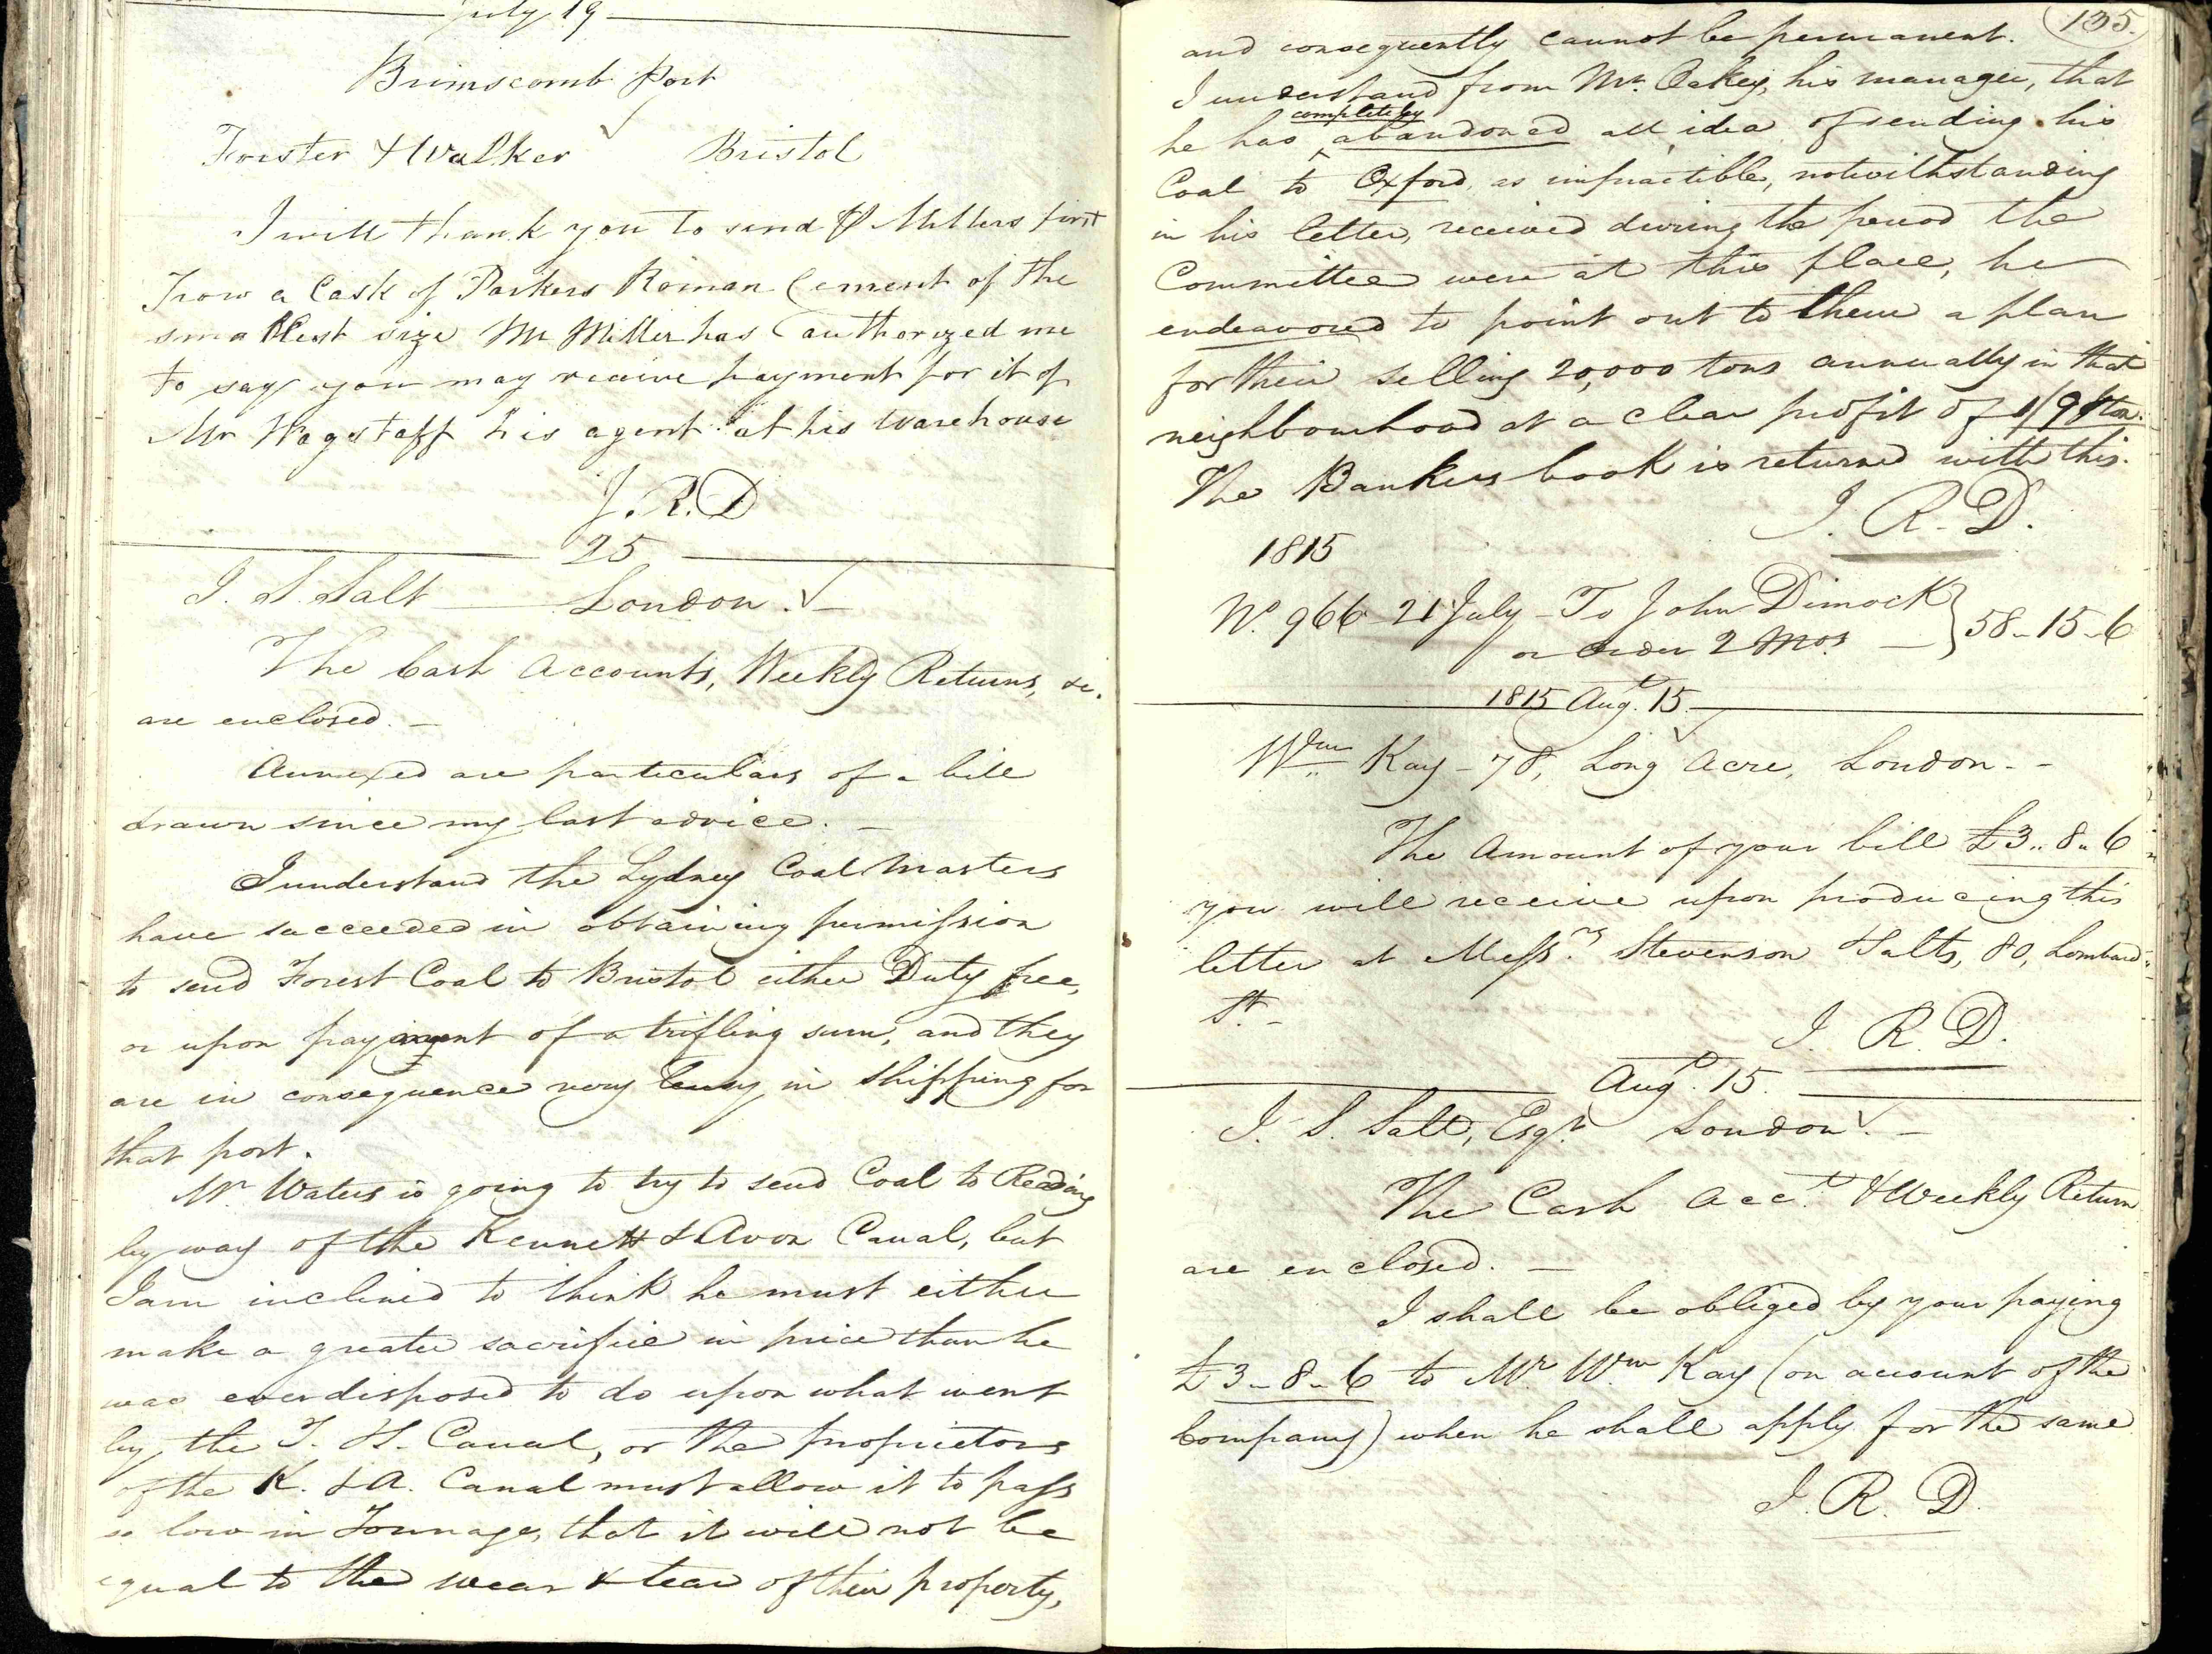 July 19
Brimscomb Port
Forster & Walker Bristol
I will thank you to send P Millers first
Trow a Cask of Parkers Roman Cement of the
smallest size Mr Miller has authorized me
to say you may receive payment for it of
Mr Wagstaff his agent at his Warehouse
J. R. D
25
I. S. Salt London.
The Cash Accounts, Weekly Returns, &c.
are enclosed.
Annexed are particulars of a bill
drawn since my last advice.
I understand the Lydney Coal Masters
have succeeded in obtaining permission
to send Forest Coal to Bristol either Duty free,
or upon payment of a trifling sum, and they
are in consequence very busy in shipping for
that port.
Mr Waters is going to try to send Coal to Reading
by way of the Kennett & Avon Canal, but
I am inclined to think he must either
make a greater sacrifice in price than he
was ever disposed to do upon what went
by the T. & S. Canal, or the proprietors
of the K. & A. Canal must allow it to pass
so low in Tonnage, that it will not be
equal to the wear & tear of their property,
135.
and consequently cannot be permanent.
I understand from Mr. Oakey, his manager, that
he has completely abandoned all idea of sending his
Coal to Oxford, as impractible, notwithstanding
in his letter, received during the period the
Committee were at this place, he
endeavored to point out to them a plan
for their selling 20,000 tons annually in that
neighbourhood at a clear profit of 1/9 ⅌ ton.
The Bankers book is returned with this.
I. R. D.
1815
No. 966 21 July - To John Dimock } 58-15-6
or order 2 Mos.
1815 Augt. 15.
Wm. Kay - 78, Long Acre, London.-
The Amount of your bill £3..8..6
you will receive upon producing this
letter at Messrs. Stevenson & Salts, 80, Lombard
St.-
I. R. D.
Augt. 15.
I. S. Salt, Esqr. London.
The Cash Acct. & Weekly Return
are enclosed.
I shall be obliged by your paying
£3-8-6 to Mr. Wm Kay (on account of the
Company) when he shall apply for the same
I. R. D.